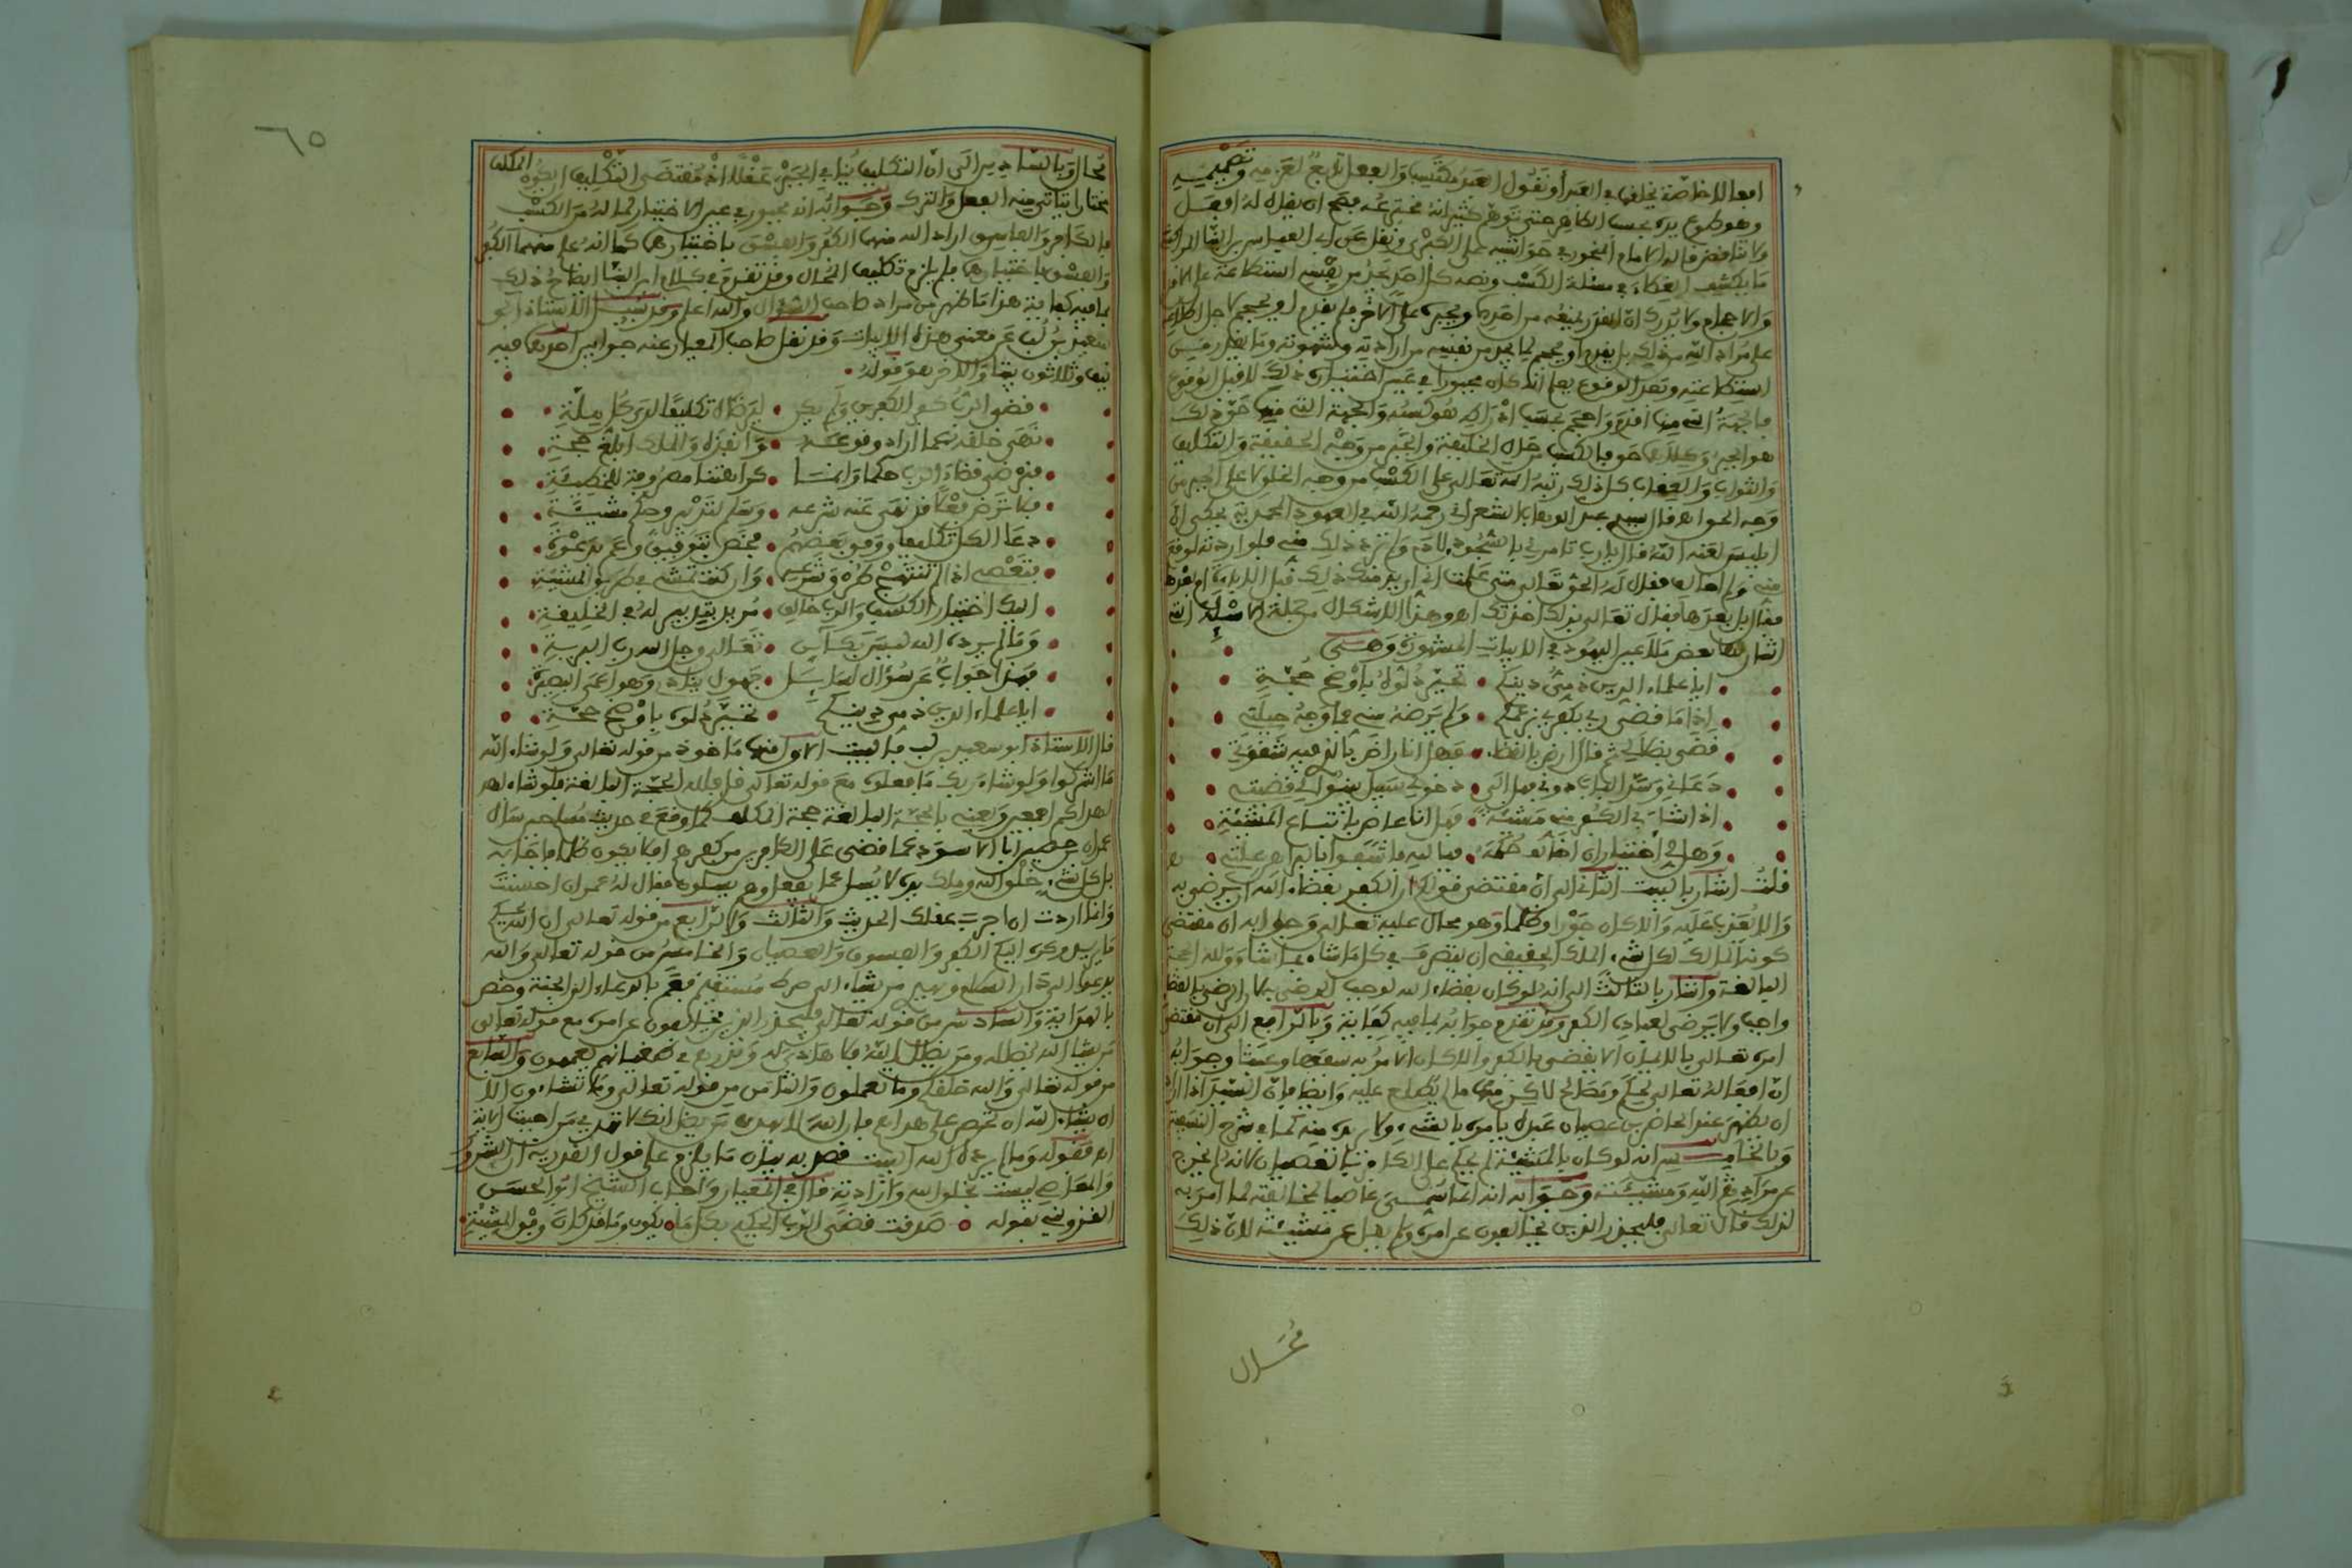 وهو طوع يده بحسب الظاهر حتى توهم كثير انه مخترعه فصح ان يقال له افعل
ولا تناقض قاله الامام المنجور في حواشيه على الكبرى ونقل عن ابي العباس بن البنا المراكشي
ما يكشف الغطاء في مسئلة الكسب ونصه كل احد يجد من نفسه استطاعة على الاقدام
والاحجام ولا يدرك ان القدر يمنعه من احدهما ويجبره على الاخر فلم يقدم او يحجم لاجل اطلاعه
على مراد الله من ذلك بل يقدم او يحجم لما يجد من نفسه من ارادته وشهوته وما يظهر من
استطاعته وبعد الوقوع يعلم انه كان مجبورا في عين اختياره ذلك لا قبل الوقوع
فالجهة التي منها اقدم واحجم بحسب ادراكه هو كسبه والجهة التي منها حق ذلك
هو الجبر وكلاهما حق فالكسب من جهة الخليقة والجبر من جهة الحقيقة والتكليف
والثواب والعقاب كل ذلك رتبه الله تعالى على الكسب من وجه الخلق لا على الجبر من
وجه الحق اه قال سيدي عبد الوهاب الشعراني رحمه الله في العهود المحمدية يحكى ان
ابليس لعنه الله قال يا رب تامرني بالسجود لادم ولم ترد ذلك مني فلو اردته لوقع
مني ولم اخالف فقال له الحق تعالى متى علمت اني لم ارد منك ذلك قبل الاباية ام بعدها
فقال بل بعدها فقال تعالى بذلك اخذتك اه وهذا الاشكال من جملة الاسئلة التي
اشار لها بعض ملاعين اليهود في الابيات المشهورة وهي
ايا علماء الدين ذمي دينكم • تحير دلوه باوضح حجة
اذا ما قضى ربي بكفري بزعمكم • ولم يرضه مني فما وجه حيلتي
قضى بضلالي ثم قال ارض بالقضا • فهل انا راض بالذي فيه شقوتي
دعاني وسد الباب دوني فهل الى • دخولي سبيل بينوا لي قضيتي
اذا شاء ربي الكفر مني مشيئة • فهل انا عاص باتباع المشيئة
وهل لي اختيار ان اخالف حكمه • فبالله فاشفوا بالبراهين علتي اه
قلت اشار بالبيت الثاني الى ان مقتضى قولكم ان الكفر بقضاء الله ان يرضى به
والا يعذب عليه والا كان جورا وظلما وهو محال عليه تعالى وجوابه ان مقتضى
كونه المالك لكل شيء الملك الحقيقي ان يتصرف في كل ما شاء بما شاء ولله الحجة
البالغة واشار بالثالث الى انه لو كان بقضاء الله لوجب الرضى به لان الرضى بالقضا
واجب ولا يرضى لعباده الكفر وقد تقدم جوابه بما فيه كفاية وبالرابع الى ان مقتضى
امره تعالى بالايمان الا يقضي بالكفر والا كان الامر به سفها وعبثا وجوابه
ان افعاله تعالى لحكم ومصالح لاكن منها ما لم يطلع عليه وايضا فان السيد اذا اراد
ان يظهر عند الحاضرين عصيان عبده يامره بالشيء ولا يريده منه كما في شرح النسفية
وبالخامس الى انه لو كان بالمشيئة لم يحكم على الكافر بالعصيان لانه لم يخرج
عن مراد الله ومشيئته وجوابه انه انما سمي عاصيا لمخالفته لما امر به
لذلك قال تعالى فليحذر الذين يخالفون عن امره ولم يقل عن مشيئته لان ذلك
محال
محال وبالسادس الى ان التكليف ينافي الجبر عقلا اذ مقتضى التكليف ان يكون المكلف
مختارا يتاتى منه الفعل والترك وجوابه انه مجبور في عين الاختيار لما له من الكسب
فالكافر والفاسق اراد الله منهما الكفر والفسق باختيارهما كما انه علم منهما الكفر
والفسق باختيارهما فلم يلزم تكليف المحال وقد تقدم في كلام ابن البنا ايضاح ذلك
بما فيه كفاية هذا ما ظهر من مراد صاحب السؤال والله اعلم وقد سئل الاستاذ ابو
سعيد بن لب عن معنى هذه الابيات وقد نقل صاحب المعيار عنه جوابين احدهما فيه
نيف وثلاثون بيتا والاخر هو قوله •
• قضى الرب كفر الكافرين ولم يكن • ليرضاه تكليفا لدى كل ملة •
• نهى خلقه عما اراد وقوعه • وانفاذه والملك ابلغ حجة •
• فنرضى قضاء الرب حكما وانما • كراهتنا مصروفة للخطيئة •
• فلا ترض فعلا قد نهى عنه شرعه • وسلم لتدبير وحكم مشيئة •
• دعا الكل تكليفا ووفق بعضهم • فخص بتوفيق وعم بدعوة •
• فتعصي اذا لم تنتهج طرق شرعه • وان كنت تمشي في طريق المشيئة •
• اليك اختيار الكسب والرب خالق • مريد بتدبير له في الخليقة •
• وما لم يرده الله ليس بكائن • تعالى وجل الله رب البرية •
• فهذا جواب عن سؤال لسائل • جهول ينادي وهو اعمى البصيرة •
• ايا علماء الدين ذمي دينكم • تحير دلوه باوضح حجة •
قال الاستاذ ابو سعيد بن لب فالبيت الاول منها ماخوذ من قوله تعالى ولو شاء الله
ما اشركوا ولو شاء ربك ما فعلوه مع قوله تعالى قل فلله الحجة البالغة فلو شاء لهد
لهداكم اجمعين ويعني بالحجة البالغة حجة الملك كما وقع في حديث مسلم سال
عمران بن حصين ابا الاسود عما قضى على الكافرين من كفرهم افلا يكون ظلما فاجابه
بل كل شيء خلق الله وملك يده لا يسئل عما يفعل وهم يسئلون فقال له عمران احسنت
وانما اردت ان اجرب عقلك الحديث والثالث والرابع من قوله تعالى ان الله يحكم
ما يريد وكره اليكم الكفر والفسوق والعصيان والخامس من قوله تعالى والله
يدعو الى دار السلام ويهدي من يشاء الى صراط مستقيم فعم بالدعاء الى الجنة وخص
بالهداية والسادس من قوله تعالى فليحذر الذين يخالفون عن امره مع قوله تعالى
من يشا الله يضلله ومن يضلل الله فلا هادي له ونذرهم في طغيانهم يعمهون والسابع
من قوله تعالى والله خلقكم وما تعملون والثامن من قوله تعالى وما تشاءون الا
ان يشاء الله ان تحرص على هداهم فان الله لا يهدي من يضل انك لا تهدي من احببت الاية
اه فقوله وما لم يرده الله البيت قصد به بيان ما يلزم على قول القدرية ان الشرور
والمعاصي ليست بخلق الله وارادته قال في المعيار واجاب الشيخ ابو الحسن
القزويني بقوله • صدقت قضى الرب الحكيم بكل ما • يكون وما قد كان وفق المشيئة •
٦٥